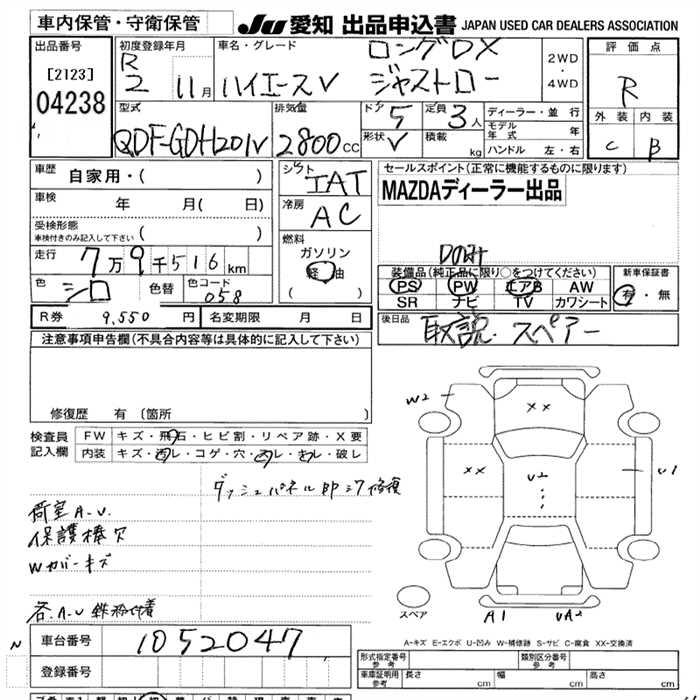 車内保管・守衛保管
JU 愛知 出品申込書 JAPAN USED CAR DEALERS ASSOCIATION
出品番号
[2123]
04238
初度登録年月
R
2 11月
車名・グレード
ロングDX
ハイエースV ジャストロー
2WD
・
4WD
評価点
R
外装 内装
C B
型式
QDF-GDH201V
排気量
2800cc
ドア 5
形状 V
定員 3人
積載 kg
ディーラー・並行
モデル年式 年
ハンドル 左・右
車歴 自家用・( )
車検 年 月( 日)
受検形態
車検付きのみ記入して下さい ( )
走行 7万9千516km
色 シロ 色替 色コード 058
シフト IAT
冷房 AC
燃料
ガソリン
軽油
( )
セールスポイント(正常に機能するものに限ります)
MAZDAディーラー出品
装備品(純正品に限り○をつけてください)
PS PW エアB AW
SR ナビ TV カワシート
新車保証書
有・無
R券 9,550円 名変期限 月 日
後日品 取説・スペアー
注意事項申告欄(不具合内容等は具体的に記入して下さい)
修復歴 有(箇所 )
検査員記入欄
FW キズ・飛石・ヒビ割・リペア跡・X要
内装 キズ・汚レ・コゲ・穴・スレ・キレ・破レ
荷室A.U.
保護棒欠
Wカバーキズ
W2
XX
XX
U2
U1
スペア
A1
UA2
A-キズ E-エクボ U-凹み W-補修跡 S-サビ C-腐食 XX-交換済
N
車台番号 1052047
登録番号
形式指定番号
参考
類別区分番号
参考
車庫証明用
参考
長さ cm
幅 cm
高さ cm